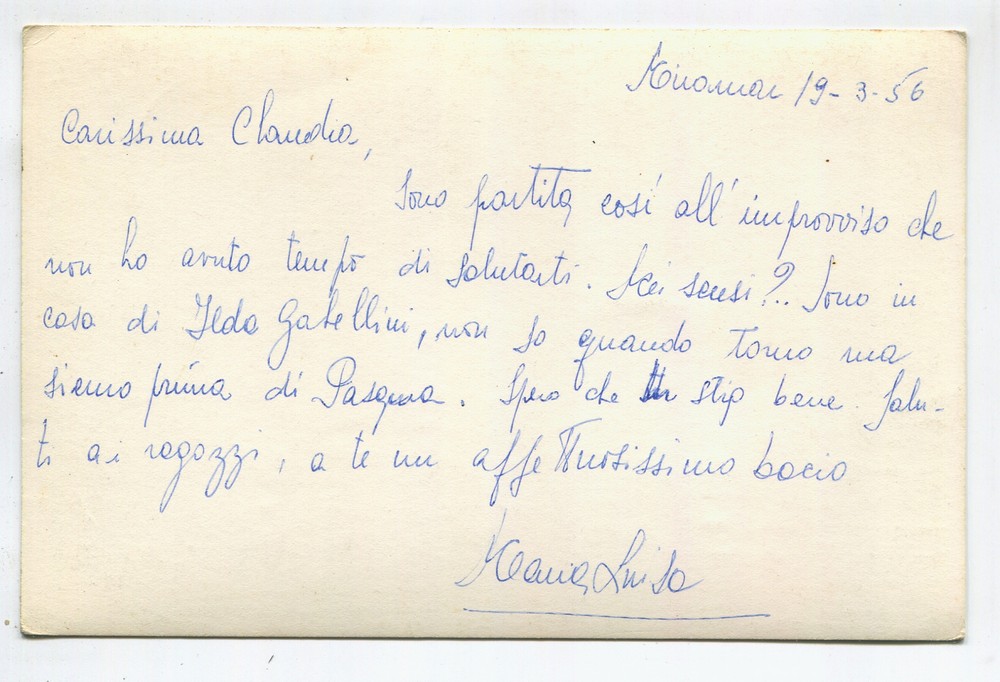 Miramar 19-3-56
Carissima Claudia,
Sono partita così all'improvviso che
non ho avuto tempo di salutarti. Mi scusi?.. Sono in
casa di Ilda Gabellini, non so quando torno ma
siamo prima di Pasqua. Spero che tu stia bene. Salu-
ti ai ragazzi, a te un affettuosissimo bacio
Maria Luisa